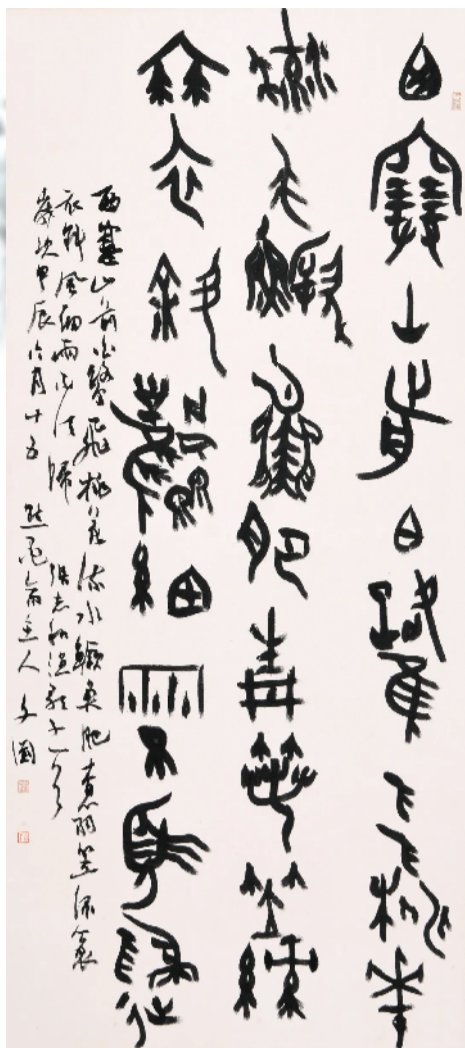 西塞山前白鷺飛桃華
流水鱖魚肥青箬笠綠
蓑衣斜風細雨不須歸
西塞山前白鷺飛桃花流水鱖魚肥青箬笠綠蓑
衣斜風細雨不須歸 張志和漁歌子一首
歲次甲辰六月十五 齋主人 文國